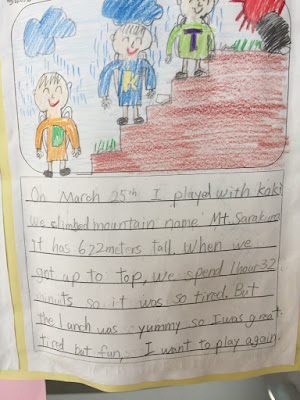 D
K
T
On March 25th I played with koki
we climbed mountain name Mt. Sarakura
It has 622meters tall. When we
get up to top, we spend 1hour 32
minuts so it was so tired. But
the lunch was yummy so I was great.
tired but fun. I want to play again.